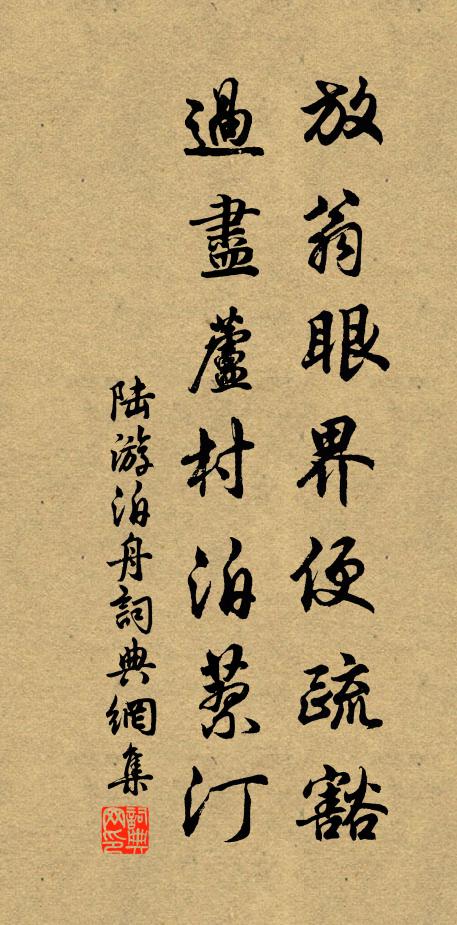 放翁眼界便疏豁
過盡蘆村泊蓼汀
陆游泊舟詞典網集
詞典网印